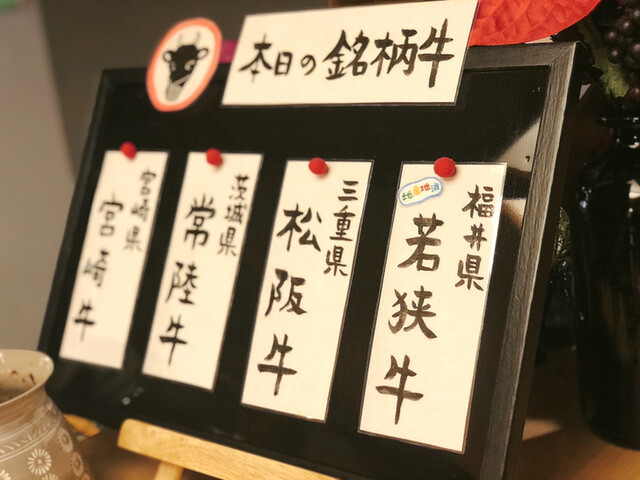 本日の銘柄牛
福井県
地産地消
若狭牛
三重県
松阪牛
茨城県
常陸牛
宮崎県
宮崎牛